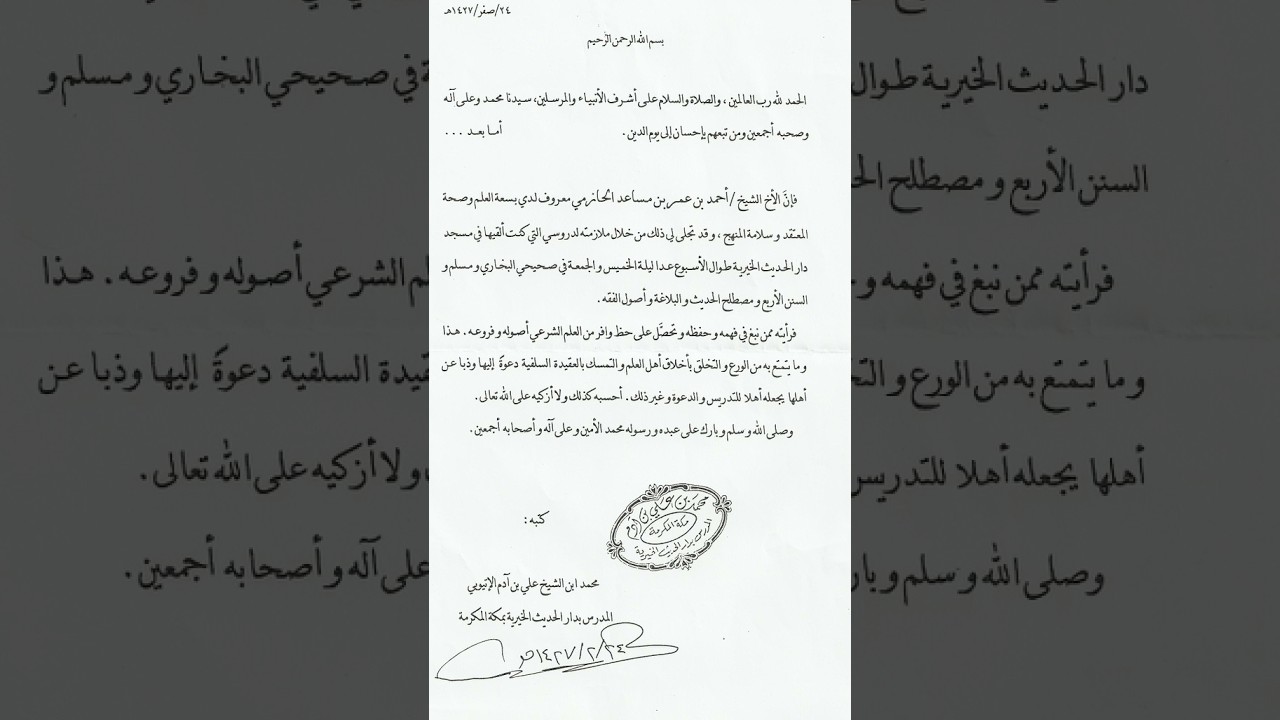 ٢٤/صفر/١٤٢٧هـ
بسم الله الرحمن الرحيم
الحمد لله رب العالمين، والصلاة والسلام على أشرف الأنبياء والمرسلين، سيدنا محمد وعلى آله
وصحبه أجمعين ومن تبعهم بإحسان إلى يوم الدين. أما بعد ...
فإنَّ الأخ الشيخ/أحمد بن عمر بن مساعد الحازمي معروف لدي بسعة العلم وصحة
المعتقد وسلامة المنهج، وقد تجلى لي ذلك من خلال ملازمته لدروسي التي كنت ألقيها في مسجد
دار الحديث الخيرية طوال الأسبوع عدا ليلة الخميس والجمعة في صحيحي البخاري ومسلم و
السنن الأربع ومصطلح الحديث والبلاغة وأصول الفقه.
فرأيته ممن نبغ في فهمه وحفظه وتحصَّل على حظ وافر من العلم الشرعي أصوله وفروعه. هذا
وما يتمتع به من الورع والتخلق بأخلاق أهل العلم والتمسك بالعقيدة السلفية دعوةً إليها وذبا عن
أهلها يجعله أهلا للتدريس والدعوة وغير ذلك. أحسبه كذلك ولا أزكيه على الله تعالى.
وصلى الله وسلم وبارك على عبده ورسوله محمد الأمين وعلى آله وأصحابه أجمعين.
كتبه:
محمد بن علي بن آدم
مكة المكرمة
المدرس بدار الحديث الخيرية
محمد ابن الشيخ علي بن آدم الإتيوبي
المدرس بدار الحديث الخيرية بمكة المكرمة
١٤٢٧/٢/٢٤هـ